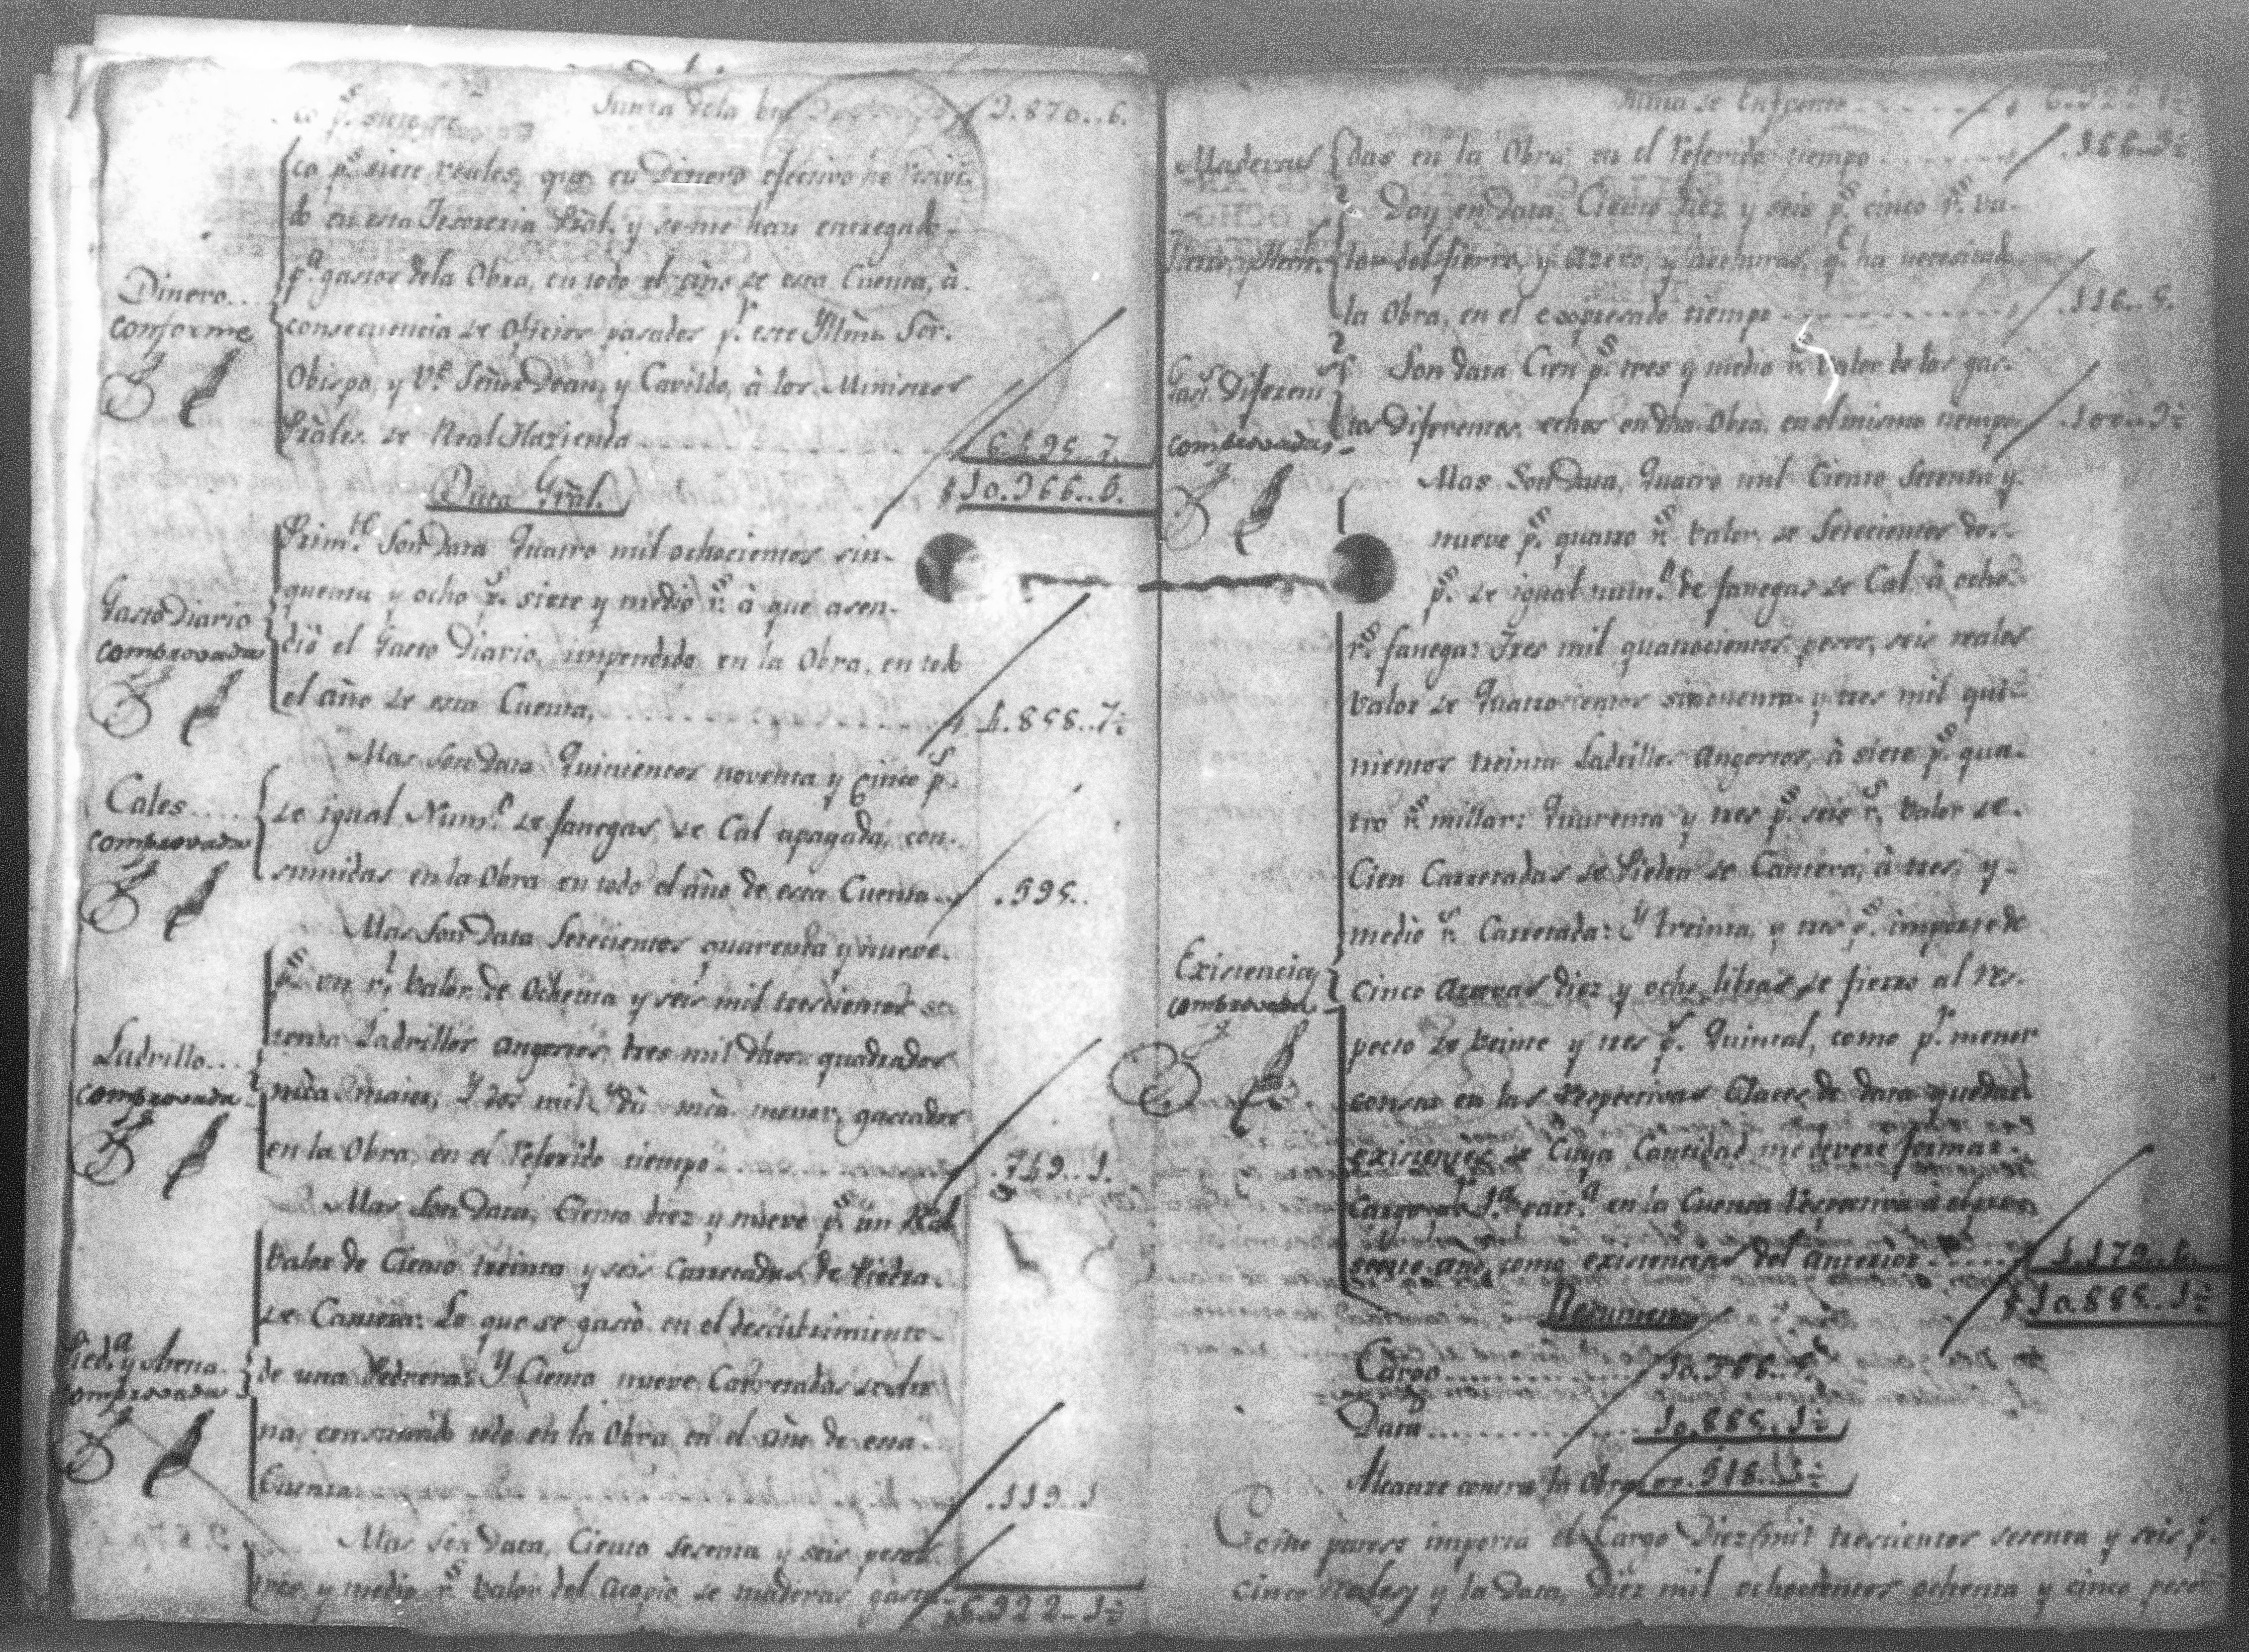 Suma de la bu 3.870..6.
co p.s siete reales, que en Dinero efectivo he recivi-
do en esta Tesoreria Prãl. y se me hau entregado
p.a gastos dela Obra, en todo el año de esta Cuenta, à
Dinero..
conforme
consecuencia de Oficios pasados p.r este Illmo. Sor.
Obispo, y V.e Señor Dean, y Cavildo, à los Ministros
Prãles. de Real Hazienda 6.495..7.
Data Grãl. $10.366..5.
Prim.te Son Data Quatro mil ochocientos sin-
quenta y ocho p.s siete y medio r.s à que asen-
Gasto Diario
comprovada
dió el Gasto Diario, impendido en la Obra, en todo
el año de esta Cuenta, 4.858..7½
Mas son Data Quinientos noventa y cinco p.s
Cales....
comprovada
de igual Num.o de fanegas de Cal apagada, con-
sumidas en la Obra en todo el año de esta Cuenta .595..
Mas Son Data Setecientos quarenta y nueve
p.s un r.l valor de Ochenta y seis mil trescientos se-
tenta Ladrillos angostos; tres mil dhos. quadrados
Ladrillo...
comprovada
mar. maior, Y dos mil menor, gastados
en la Obra, en el referido tiempo .749..1.
Mas Son Data, Ciento diez y nueve p.s un Real
valor de Ciento treinta y seis Carretadas de Piedra
de Cantera: Lo que se gastó en el descubrimiento
Pied.a y Arena.
comprovada
de una Pedrera: Y Ciento nueve Carretadas de Are-
na, consumido todo en la Obra en el año de esta
Cuenta .119..1
Mas Son Data, Ciento Sesenta y seis pesos
tres y medio r.s valor del acopio de maderas gasta- 6.322..1½
Suma de Enfrente 6.322..1½
Maderas
das en la Obra; en el referido tiempo .166..3½
Doy en Data, Ciento Diez y seis p.s cinco r.s va-
lor del fierro, y azero, y hechuras, q.e ha necesitado
la Obra, en el expresado tiempo .116..5.
Son data Cien p.s tres y medio r.s valor de los gas-
Gast.s Diferent.s
comprovadas
tos Diferentes, echos en dha. Obra, en el mismo tiempo .100..3½
Mas Son Data, Quatro mil Ciento Setenta y
nueve p.s quatro r.s valor de Setecientos dos
p.s de igual num.o de fanegas de Cal à ocho
r.s fanega: Tres mil quatrocientos pesos, seis reales
valor de Quatrocientos sincuenta y tres mil qui-
nientos treinta Ladrillos Angostos, à siete p.s qua-
tro r.s millar: Quarenta y tres p.s seis r.s valor de
Cien Carretadas de Piedra de Cantera, à tres, y
medio r.s Carretada: Y treinta, y tres p.s importe de
Existencia
comprovada
cinco arrovas diez y ocho libras de fierro al res-
pecto de veinte y tres p.s Quintal, como p.r menor
consta en las respectivas Clases de data quedan
existentes de Cuya Cantidad me deveré formar
Cargo en la Cuenta respectiva
año como existencias del anterior 4.179..4.
$10.885..1½
Resumen
Cargo 10.366..5.
Data 10.885..1½
Alcanze contra la Obra .518..4½
Como parece importa el Cargo Diez mil trescientos sesenta y seis p.s
cinco reales y la Data, Diez mil ochocientos ochenta y cinco pesos